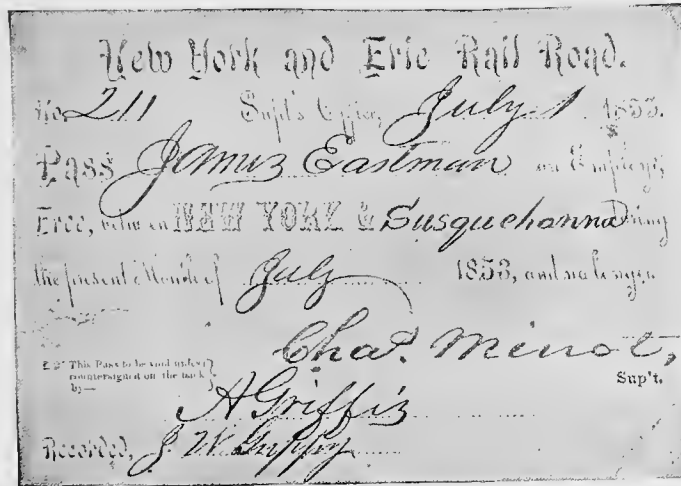 New York and Erie Rail Road.
No. 211 Sup't's Office, July 1 1853.
Pass James Eastman an Employe,
Free, between NEW YORK & Susquehanna During
the present Month of July 1853, and no longer.
Chas. Minot,
This Pass to be void unless
countersigned on the back
by—
Sup't.
A Griffiz
Recorded, J. W. Guppy